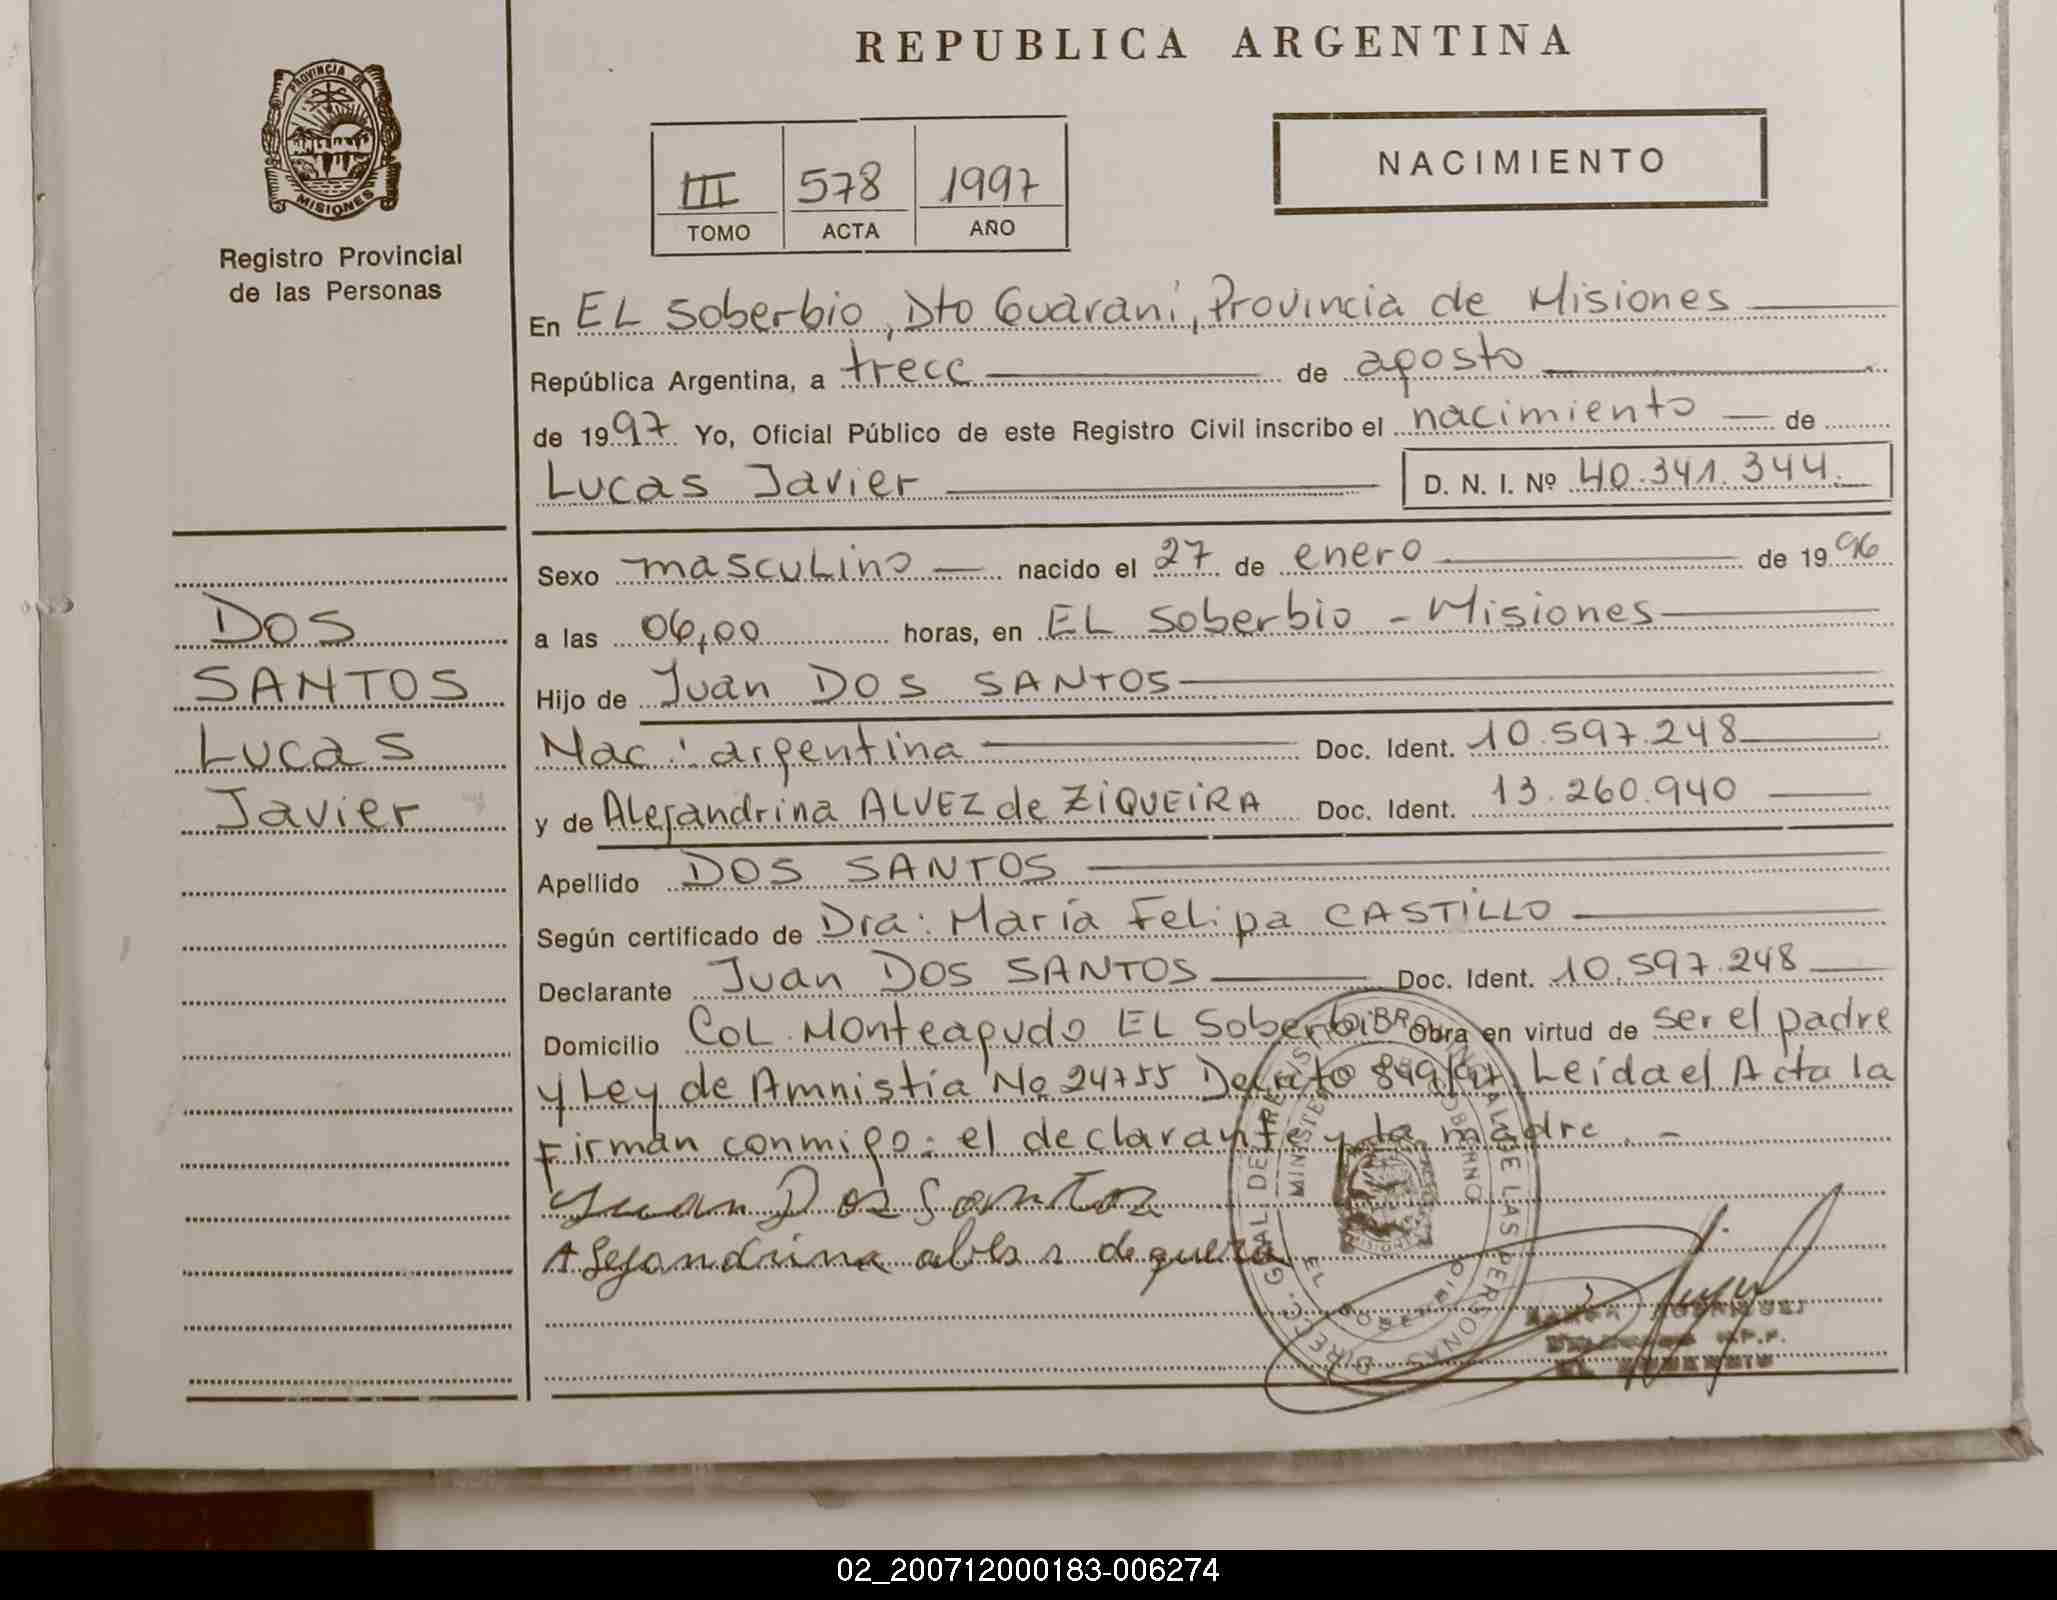 REPUBLICA ARGENTINA
PROVINCIA DE
MISIONES
Registro Provincial
de las Personas
III 578 1997
TOMO ACTA AÑO
NACIMIENTO
En EL Soberbio, Dto Guaraní, Provincia de Misiones
República Argentina, a trece de agosto
de 1997 Yo, Oficial Público de este Registro Civil inscribo el nacimiento de
Lucas Javier D. N. I. Nº 40.341.344.
Sexo masculino nacido el 27 de enero de 1996
a las 06,00 horas, en EL Soberbio - Misiones
Hijo de Juan DOS SANTOS
Nac: argentina Doc. Ident. 10.597.248
y de Alejandrina ALVEZ de ZiQUEiRA Doc. Ident. 13.260.940
Apellido DOS SANTOS
Según certificado de Dra: María Felipa CASTILLO
Declarante Juan DOS SANTOS Doc. Ident. 10.597.248
Domicilio Col. Monteagudo EL Soberbio Obra en virtud de ser el padre
y Ley de Amnistía No 24755 Decreto Leida el Acta la
Firman conmigo: el declarante y la madre. -
Juan Dos Santos
Alejandrina
DOS
SANTOS
Lucas
Javier
DIRECC. GRAL DE REGISTRO PROVINCIAL DE LAS PERSONAS
MINISTERIO DE GOBIERNO
EL SOBERBIO
02_200712000183-006274